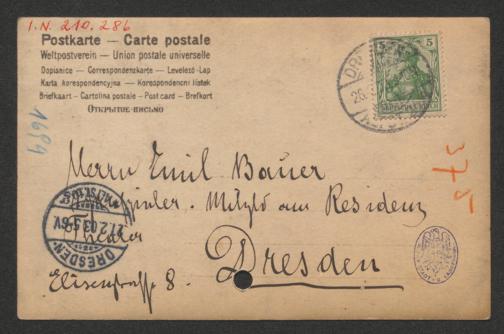 I.N. 210.286
Postkarte — Carte postale
Weltpostverein — Union postale universelle
Dopisnice — Correspondenzkarte — Levelező-Lap
Karta korespondencyjna — Korespondenční lístek
Briefkaart — Cartolina postale — Post card — Brefkort
Открытое письмо
5
1689
375
Herrn Emil Bauer
Mitgld am Residenz
Theater
Dresden
Elisenstraße 8.
DRESDEN
ALTST.
27.2.03.5-6V